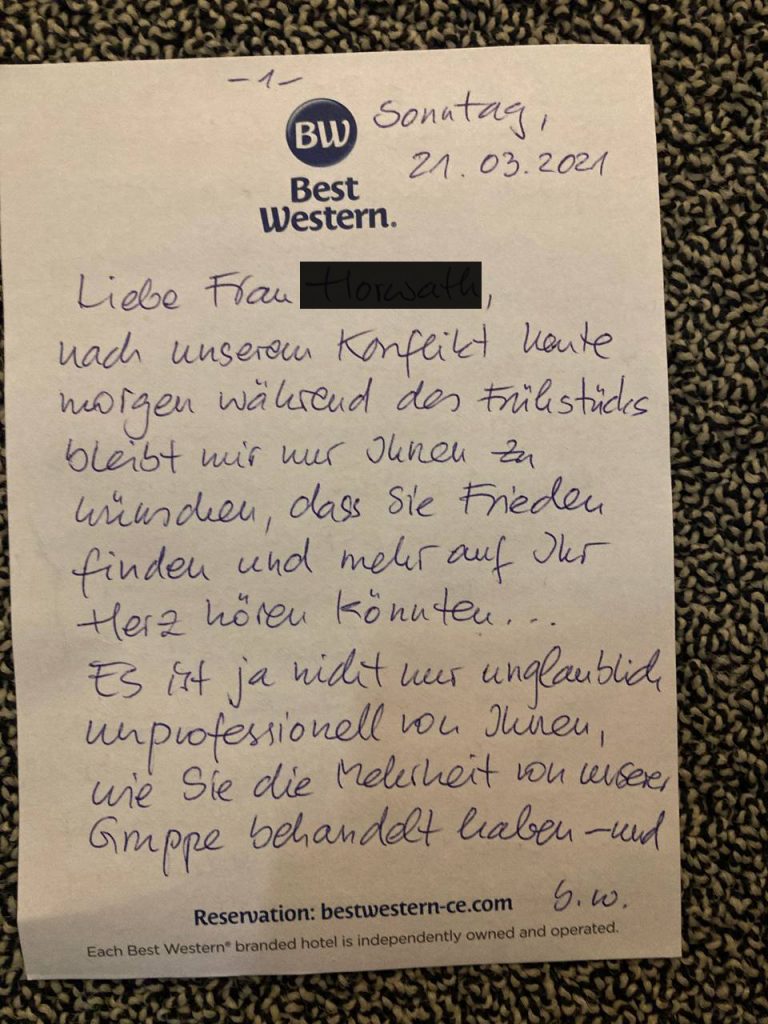 -1-
Sonntag,
21.03.2021
BW
Best
Western.
Liebe Frau ,
nach unserem Konflikt heute
morgen während des Frühstücks
bleibt mir nur Ihnen zu
wünschen, dass Sie Frieden
finden und mehr auf Ihr
Herz hören könnten...
Es ist ja nicht nur unglaublich
unprofessionell von Ihnen,
wie Sie die Mehrheit von unserer
Gruppe behandelt haben – und
b.w.
Reservation: bestwestern-ce.com
Each Best Western® branded hotel is independently owned and operated.